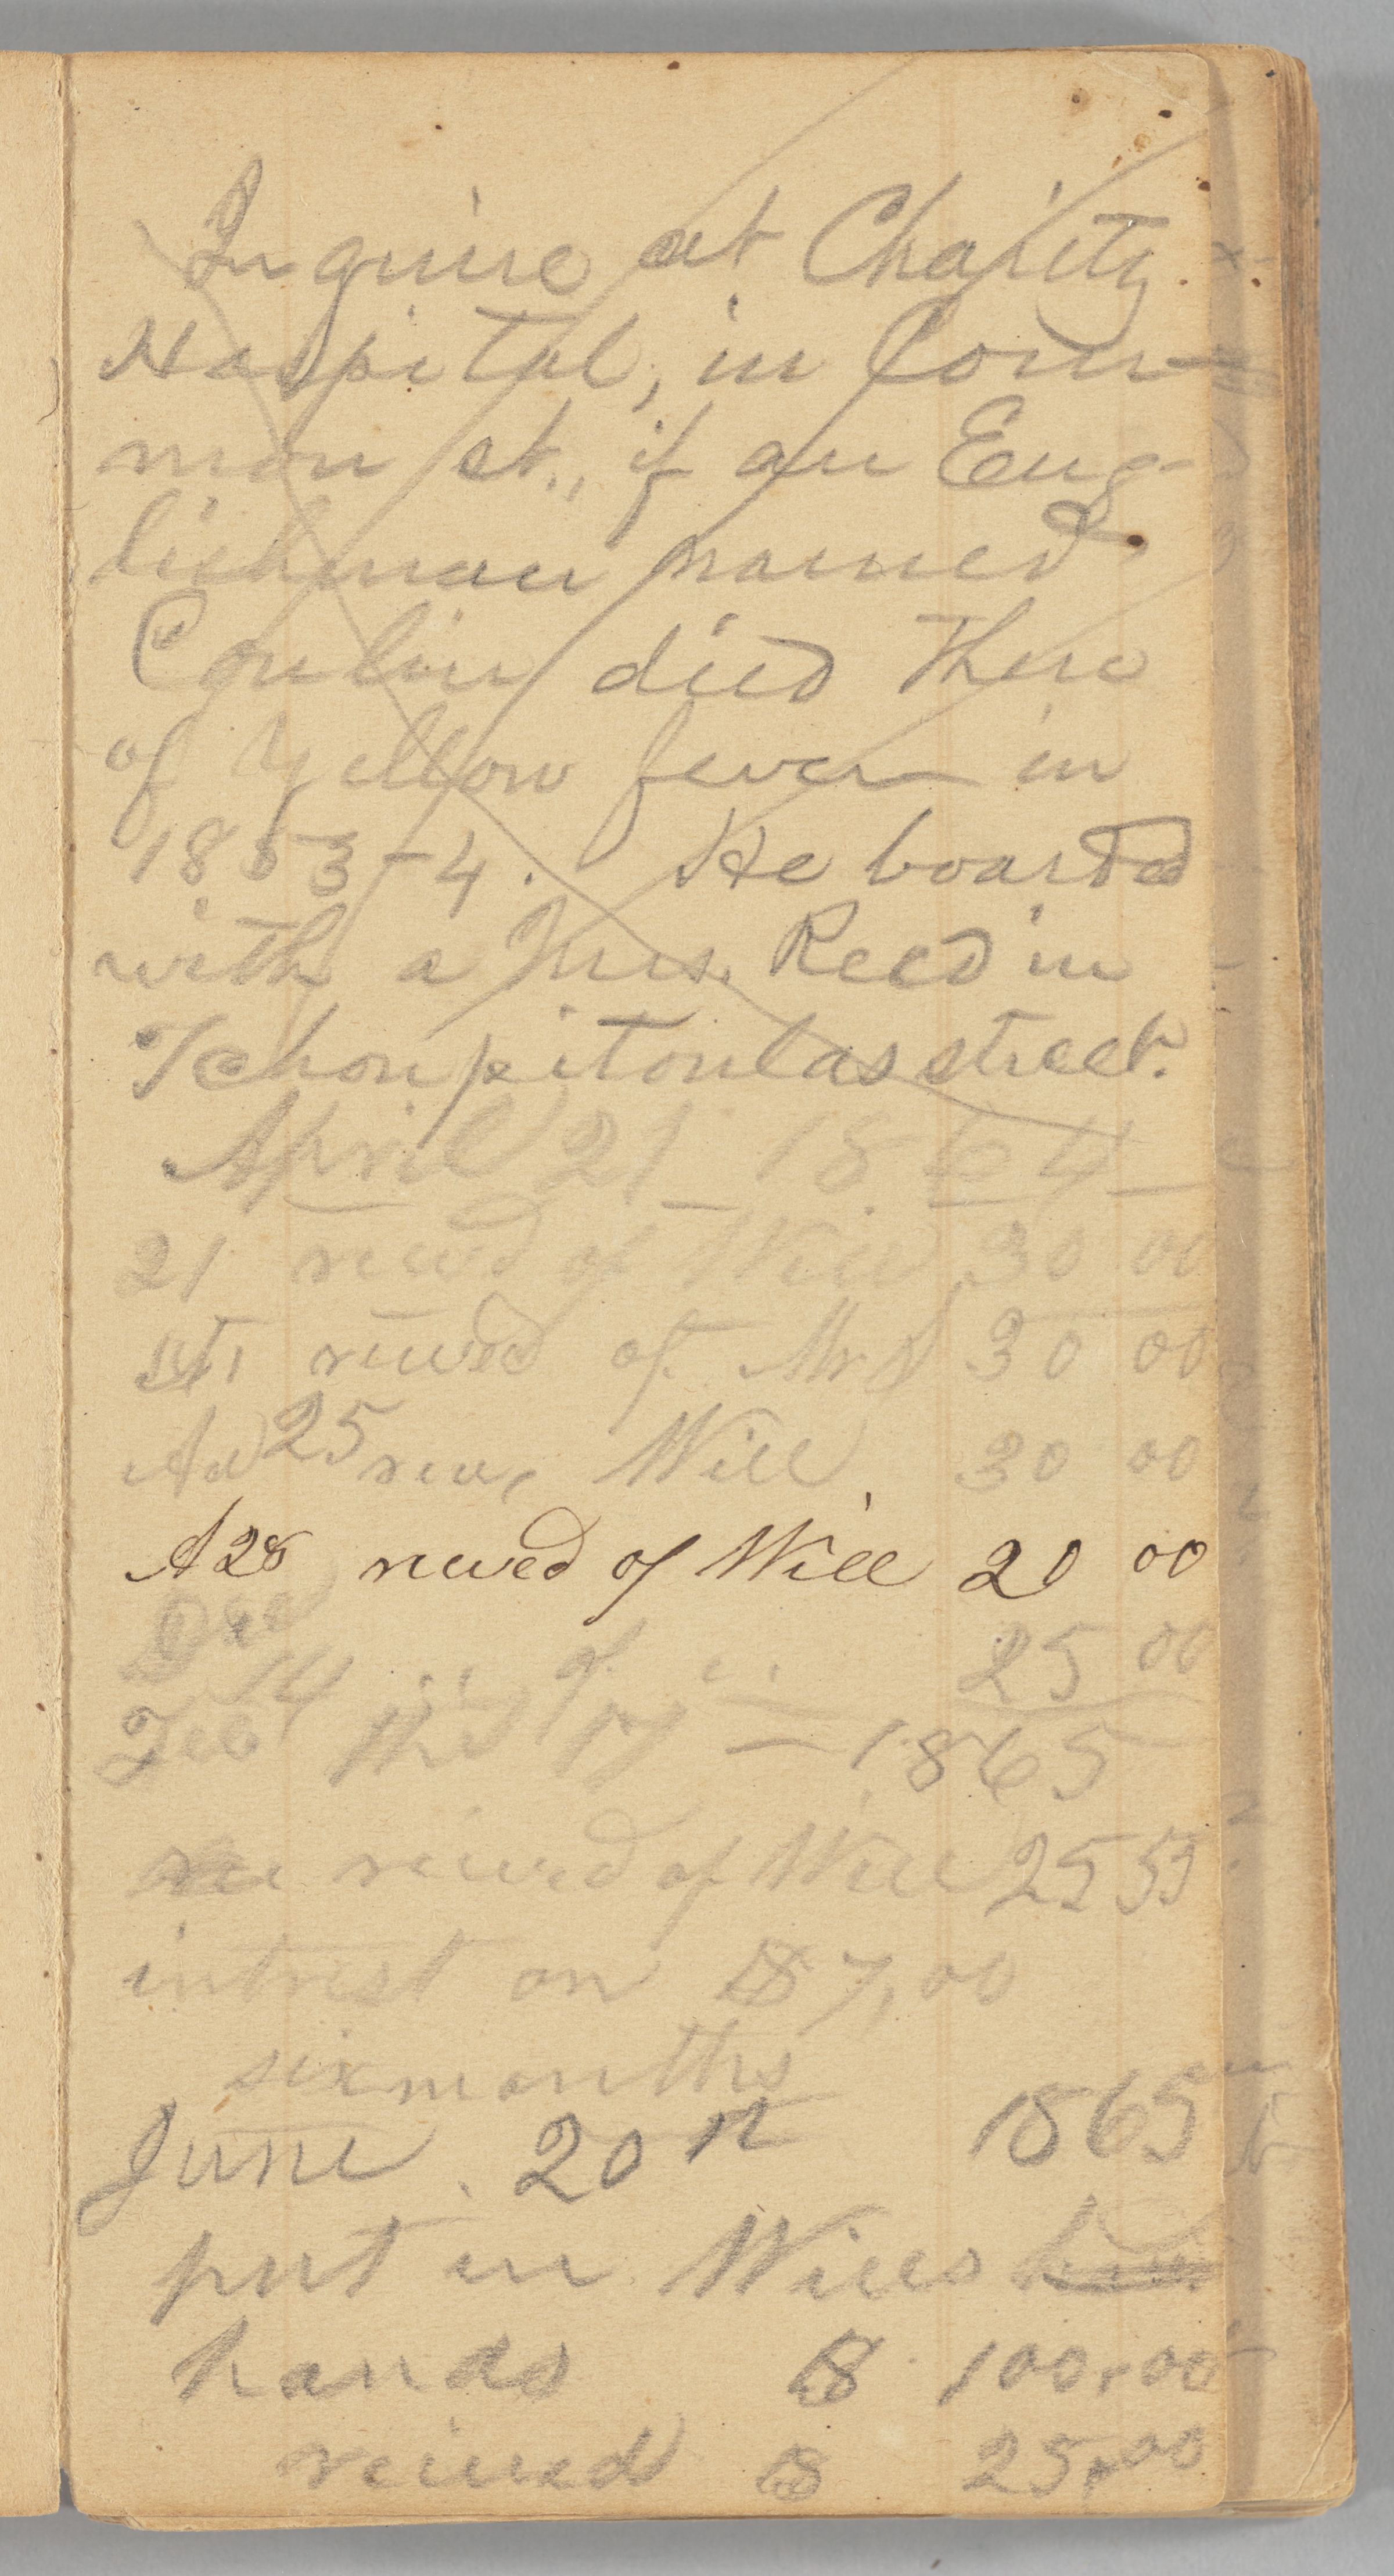 Inquire at Charity
Hospital, in Com-
mon st., if an Eng-
lishman named
Conlin died there
of Yellow fever in
1853-4. He boarded
with a Mrs. Reed in
Tchoupitoulas street.
April 21 1864
21 recived of Will 30 00
recived of Mr 30 00
25 Will 30 00
A 28 recived of Will 20 00
Dec
14 " of " 25 00
Feb the 17 — 1865
recived of Will 25 55
intrest on $ 7,00
six months
June. 20th 1865
put in Wills
hands $ 100.00
reived $ 25.00